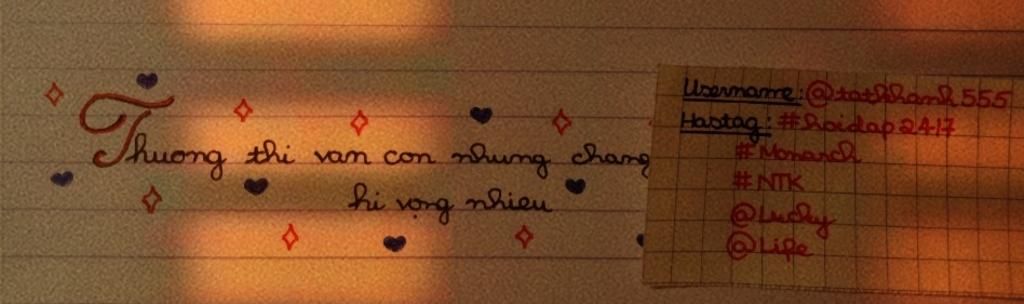 Thuong thi van con nhung chang
hi vọng nhieu
Username: @tathhanh555
Hastag: #hoidap247
#Monarch
#NTK
@Lucky
@Life